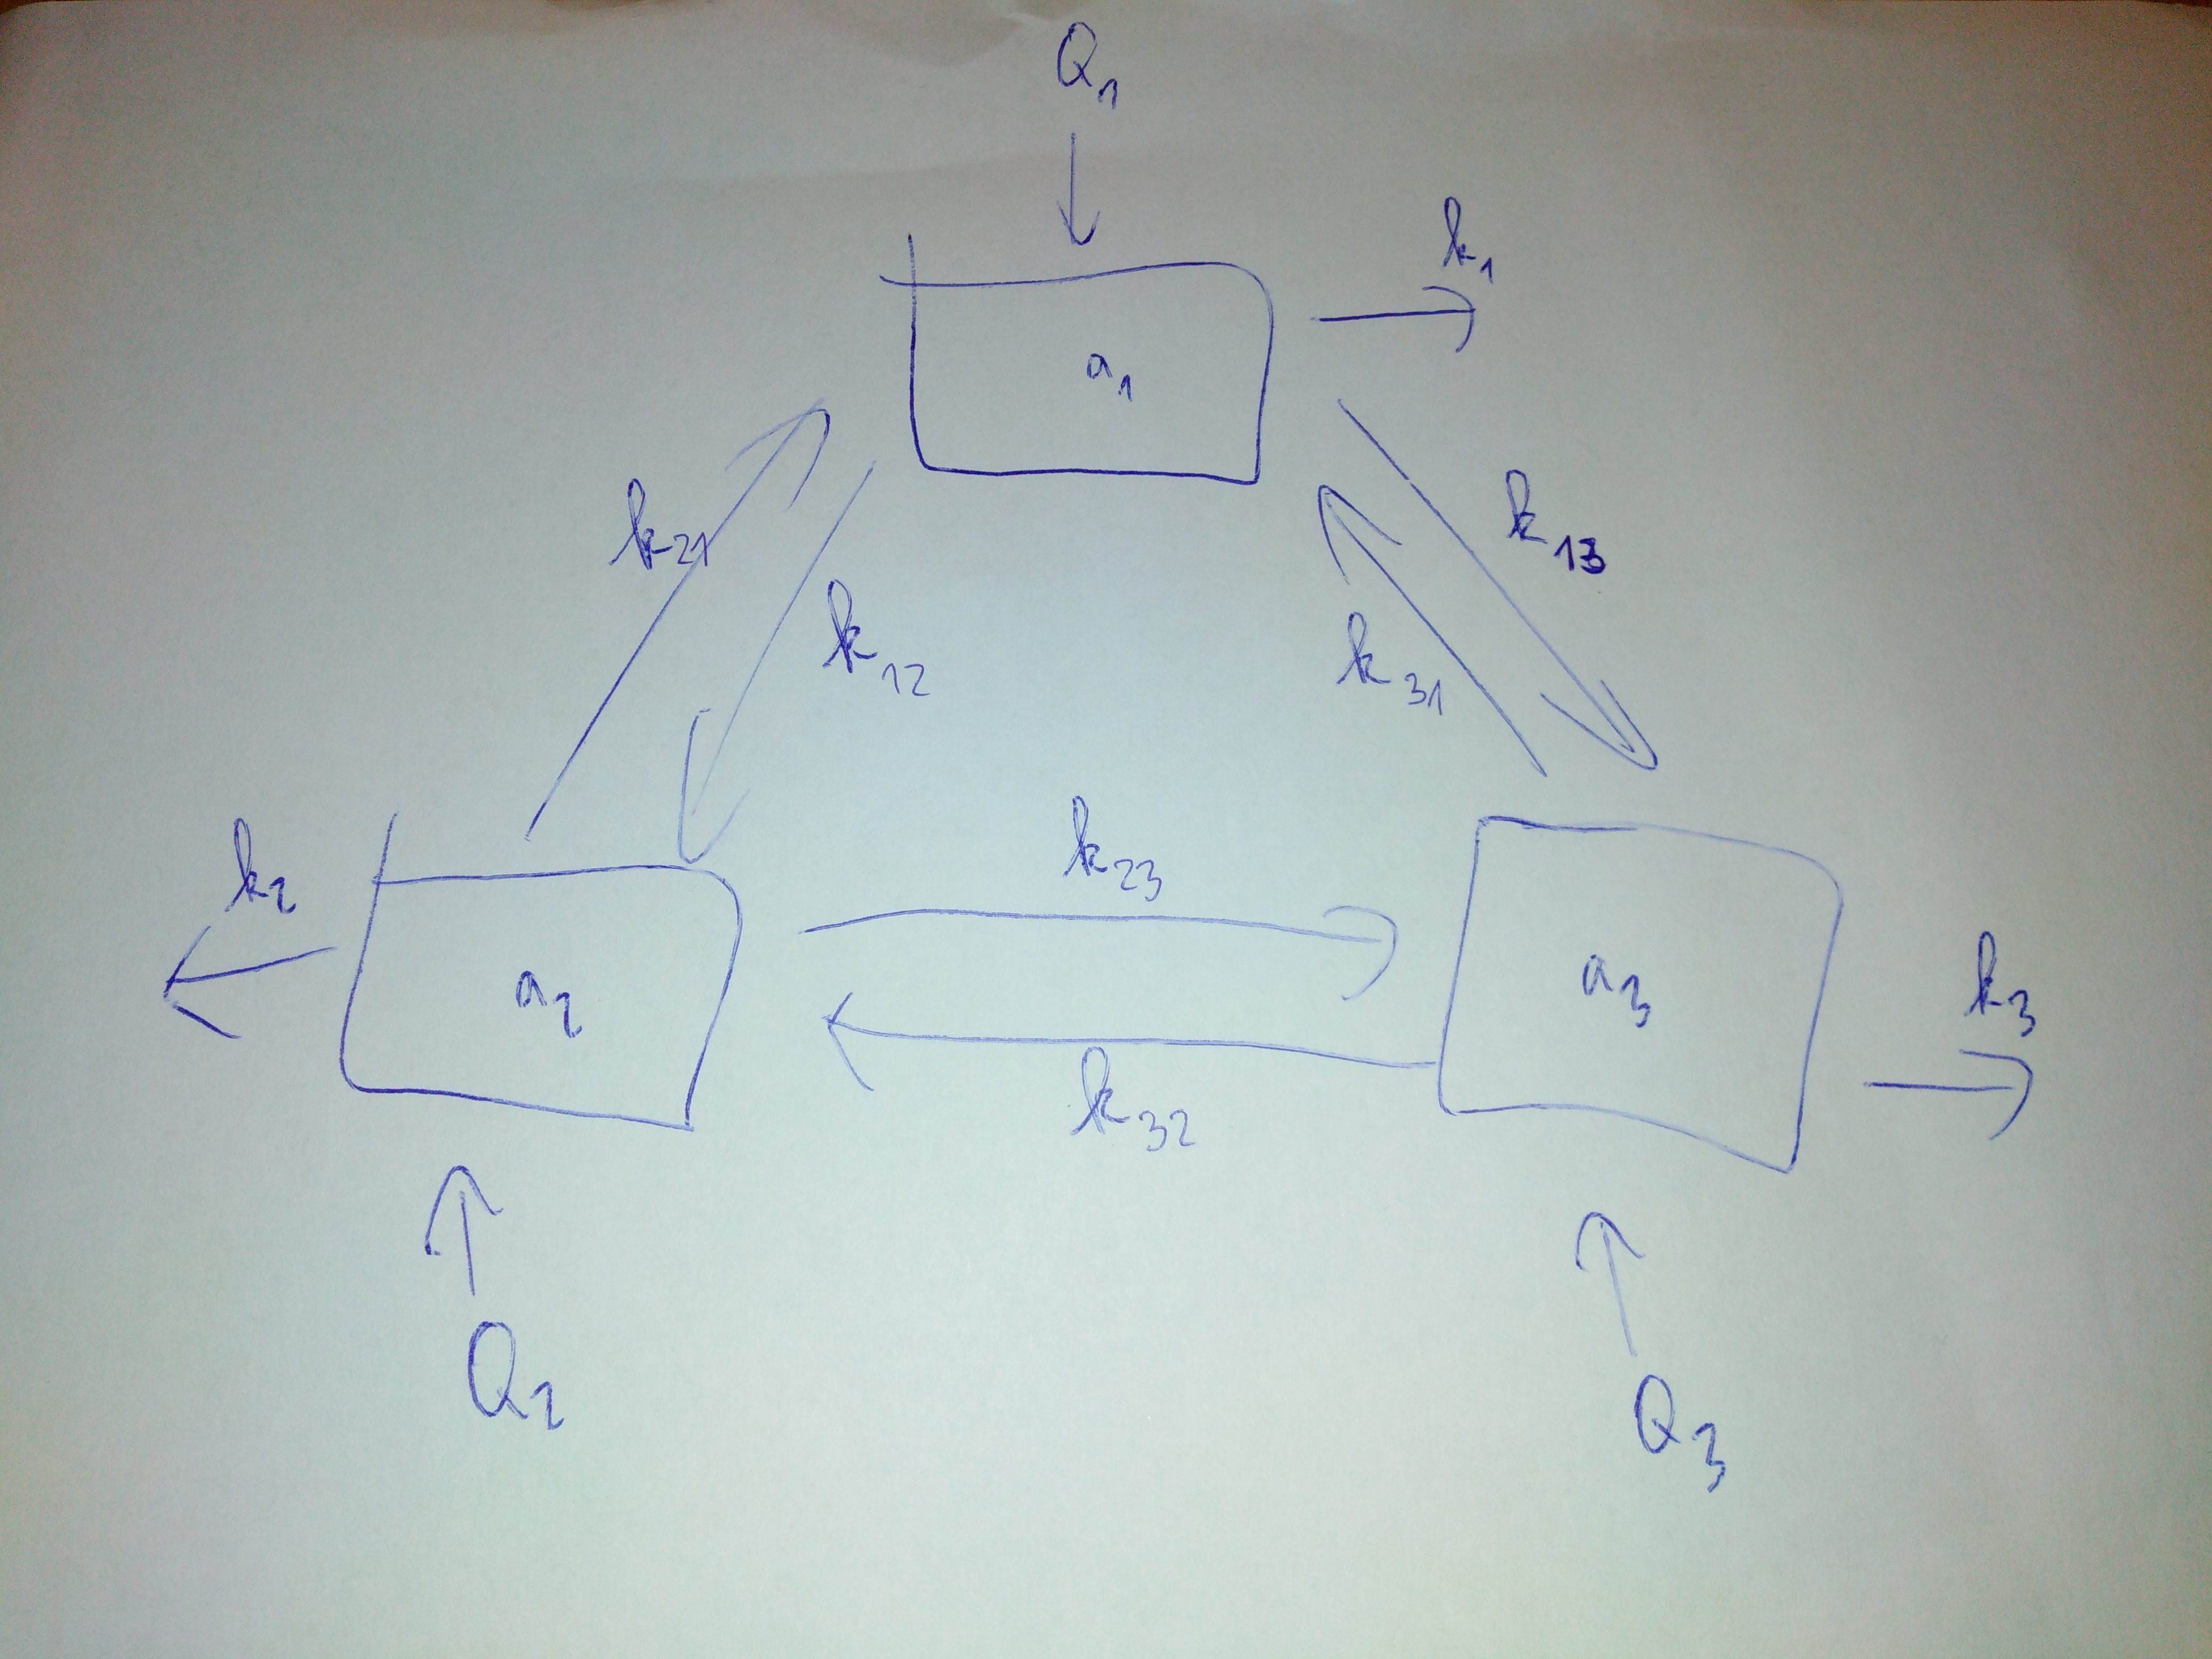 Q1
k1
a1
k21
k12
k13
k31
k2
k23
a2
a3
k3
k32
Q2
Q3